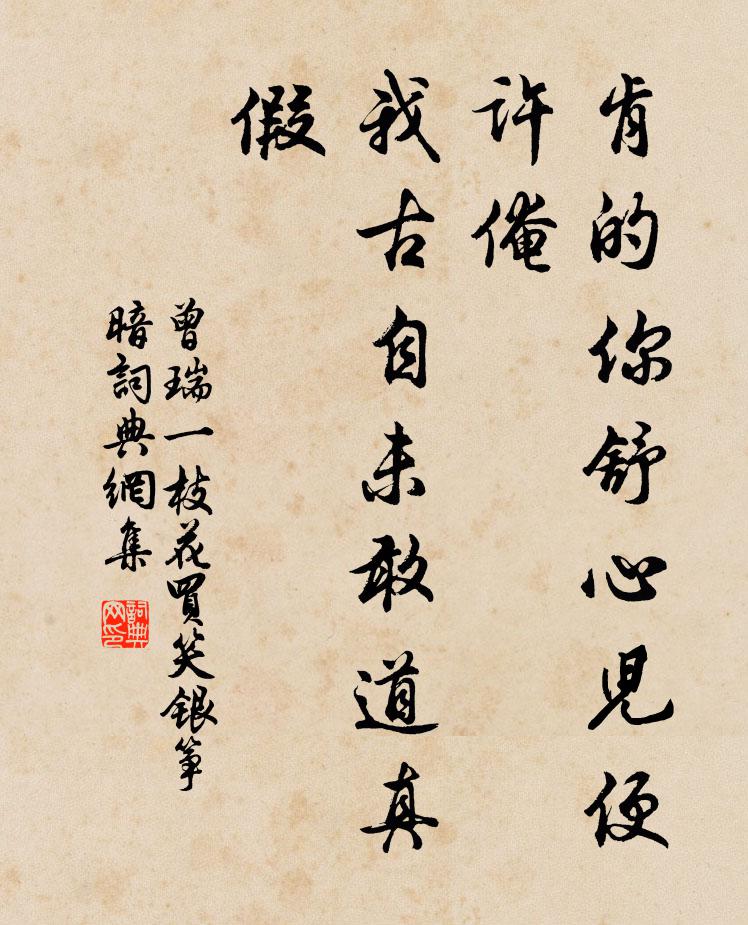 肯的你舒心児便
許俺
我古自未敢道真
假
曾瑞一枝花買笑銀箏
暗詞典網集
詞典網印